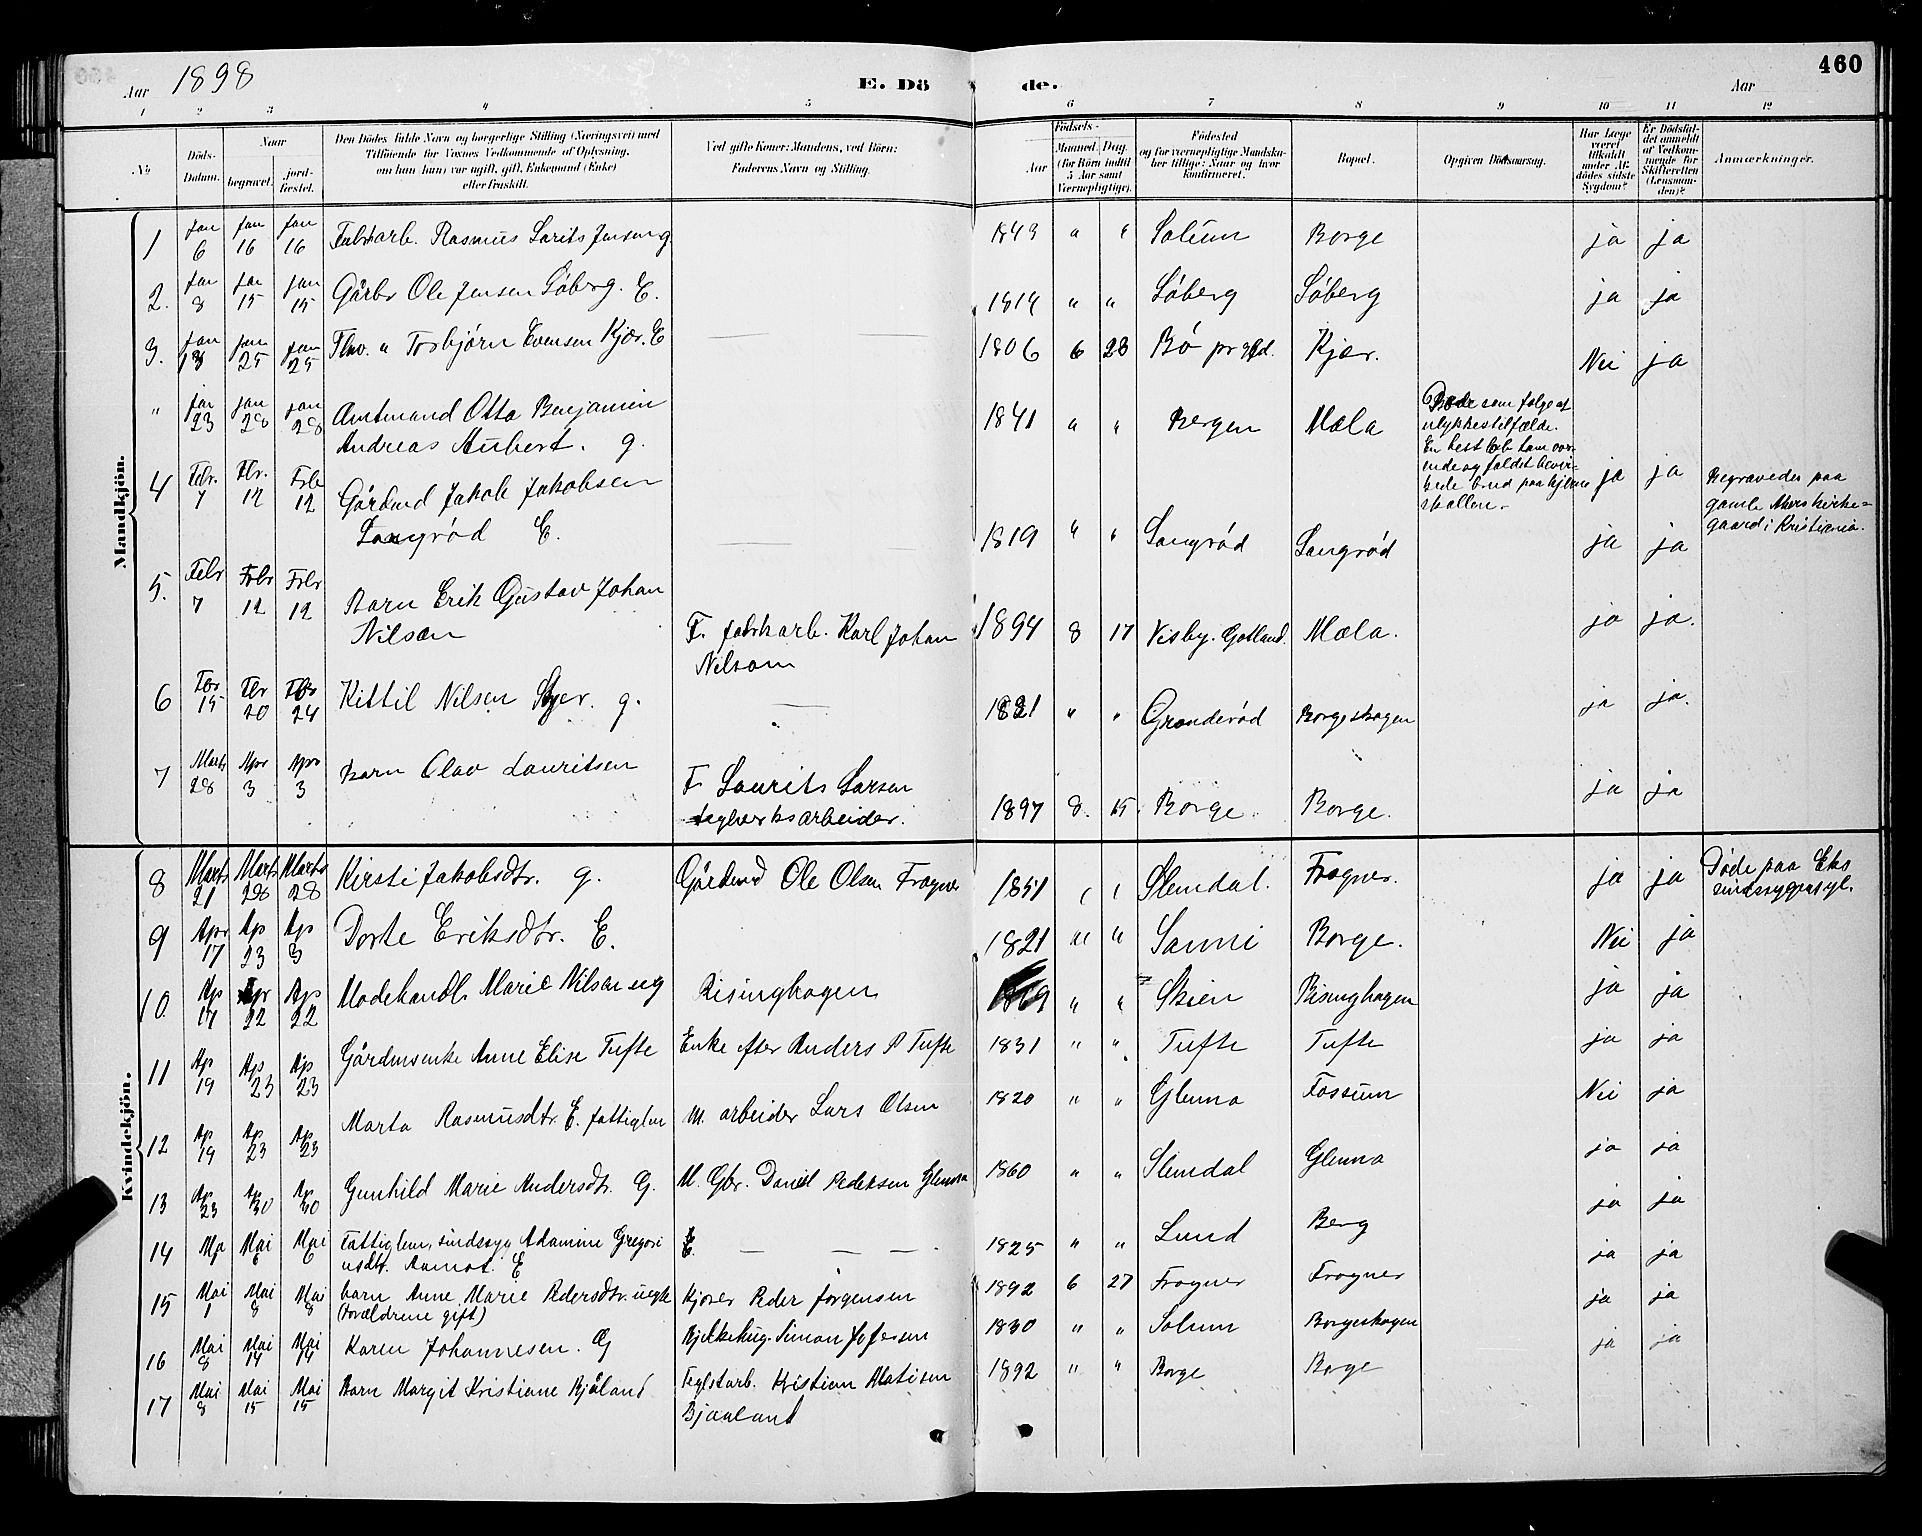 460
Aar 1898 E. Dö de. Aar
1 2 3 4 5 6 7 8 9 10 11 12
No
Döds-Datum.
Naar
begravet.
jord-fæstet.
Den Dödes fulde Navn og borgerlige Stilling (Næringsvei) med
Tilföiende for Voxnes Vedkommende af Oplysning,
om han (hun) var ugift, gift, Enkemand (Enke)
eller fraskilt.
Ved gifte Koner: Mandens, ved Börn:
Faderens Navn og Stilling.
Födsels-
Aar
Maaned. Dag.
(for Börn indtil
5 Aar samt
Værnepligtige).
Födested
og for værnepligtige Mandska-
ber tillige: Naar og hvor
konfirmeret.
Bopæl.
Opgiven Dödsaarsag.
Har Læge
været
tilkaldt
under Af-
dödes sidste
Sygdom?
Er Dödsfal-
det anmeldt
af Vedkom-
mende for
Skifteretten
(Lensman-
den)?
Anmærkninger.
Mandkjön.
1 Jan 6 Jan 16 Jan 16 Fabrkarb. Rasmus Larits Jensen g 1843 " " Solum Borge ja ja
2. Jan 8 Jan 15 Jan 15 Gårbr Ole Jensen Söberg. E. 1814 " " Söberg Söberg ja ja
3. Jan Jan 25 Jan 25 Torbjörn Evensen Kjær. E 1806 6 28 Bö prgjld. Kjær. Nei ja
" Jan 23 Jan 28 Jan 28 Amtmand Otto Benjamin 1841 " " Bergen Mæla ja ja
Andreas Aubert. g.
Döde som fölge af
ulykkestilfælde.
En hest löb ham over-
ende og faldet bevir-
kede brud paa hjerne
skallen.
Begravedes paa
gamle Akers kirke=
gaard i Kristiania.
4 Febr. 7 Fbr. 12 Febr 12 Gårdmd Jakob Jakobsen
Langröd E. 1819 " " Langröd Langröd ja ja
5. Febr 7 Febr 12 Febr 12 Barn Erik Gustav Johan
Nilsen F. fabrkarb. Karl Johan 1894 8 17 Visby. Gotland. Mæla. ja ja.
Nilsson
6 Fbr 15 Fbr 20 Fbr 24 Kittil Nilsen g. 1821 " " Granderöd Borgeskogen ja ja.
7 Marts 28 Apr 3 Apr 3 barn Olav Lauritsen F Laurits Larsen ja ja
teglverksarbeider. 1897 8. 15. Borge. Borge.
Kvindekjön.
8 Marts 21 Marts 28 Marts 28 Kirsti Jakobsdtr. g. Gårdmd Ole Olsen Frogner 1851 " " Slemdal. Frogner. ja ja Döde paa Eks
sindssygeasyl.
9 Apr 17 Ap 23 Ap 3 Dorte Eriksdtr. E. 1821 " " Sanni Borge. Nei ja
10. Ap 17 Apr 22 Ap 22 Modehandl. Marie Nilsen ug Risinghagen " " Skien Risinghagen ja ja
11 Ap 19 Ap 23 Ap 23 Gårdmsenke Anne Elise Tufte Enke efter Anders P Tufte 1831 " " Tufte Tufte ja ja
12 Ap 19 Ap 23 Ap 23 Marta Rasmusdtr. E. fattiglem M. arbeider Lars Olsen 1820 " " Glenna Fossum Nei ja
13 Ap 23 Ap 30 Ap 30 Gunhild Marie Andersdtr. G. M. Gbr. Daniel Pedersen Glenna 1860 " " Slemdal Glenna ja ja
14 Mai Mai 6 Mai 6 Fattiglem, sindssyg Adamine Gregori E. — — — 1825 " " Lund Berg ja ja
usdtr. E
15 Mai 1 Mai 8 Mai 8 barn Anne Marie Pedersdtr. uegte Kjörer Peder Jörgensen 1892 6 27 Frogner Frogner ja ja
(forældrene gift)
16 Mai 8 Mai 14 Mai 14 Karen Johannesen. G Bjelkehug. Simon 1830 " " Solum Borgeskogen ja ja
17 Mai 8 Mai 15 Mai 15 Barn Margit Kristiane Bjåland Teglstarb. Kristian Matisen 1892 " " Borge Borge ja ja
Bjaaland